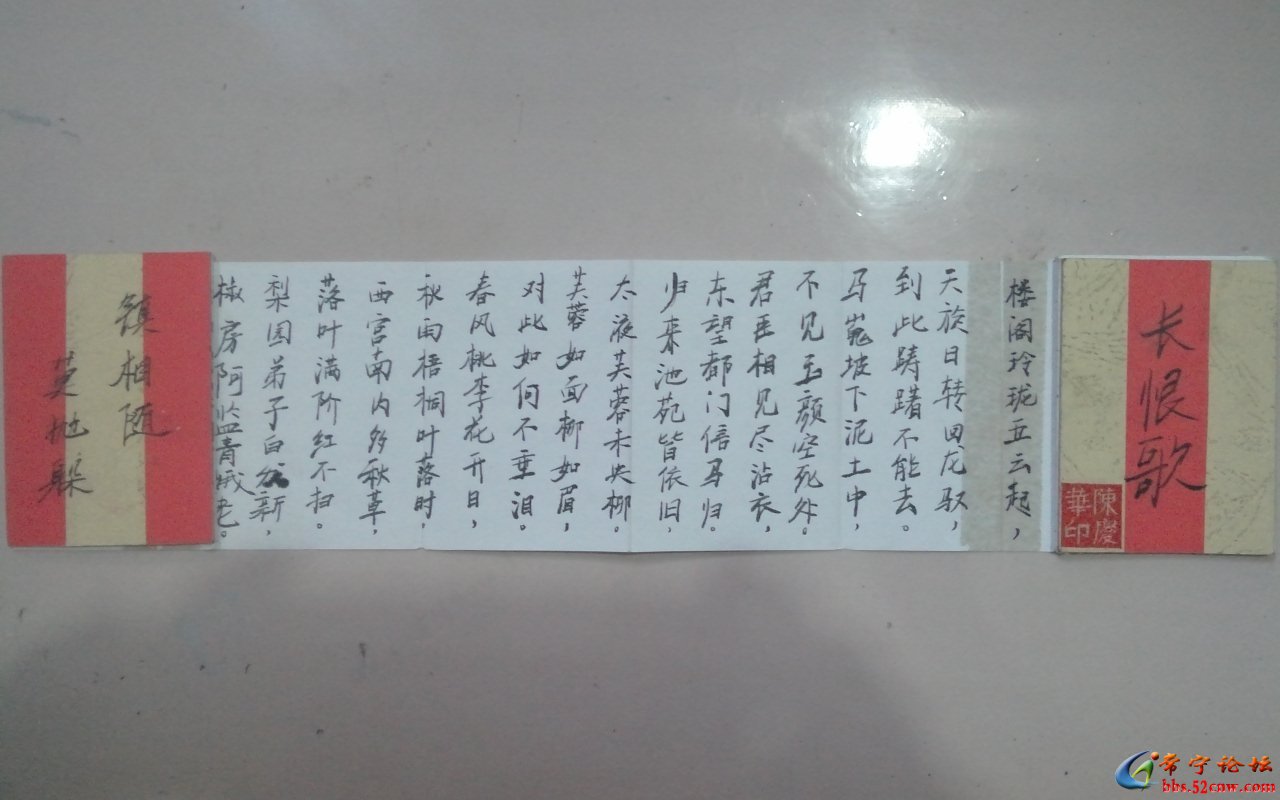 长恨歌
陳慶
華印
楼阁玲珑五云起，
天旋日转回龙驭，
到此踌躇不能去。
马嵬坡下泥土中，
不见玉颜空死处。
君臣相见尽沾衣，
东望都门信马归。
归来池苑皆依旧，
太液芙蓉未央柳。
芙蓉如面柳如眉，
对此如何不垂泪。
春风桃李花开日，
秋雨梧桐叶落时，
西宫南内多秋草，
落叶满阶红不扫。
梨园弟子白发新，
椒房阿监青娥老。
镇相随
莫抛躲
常宁论坛
bbs.52cnw.com